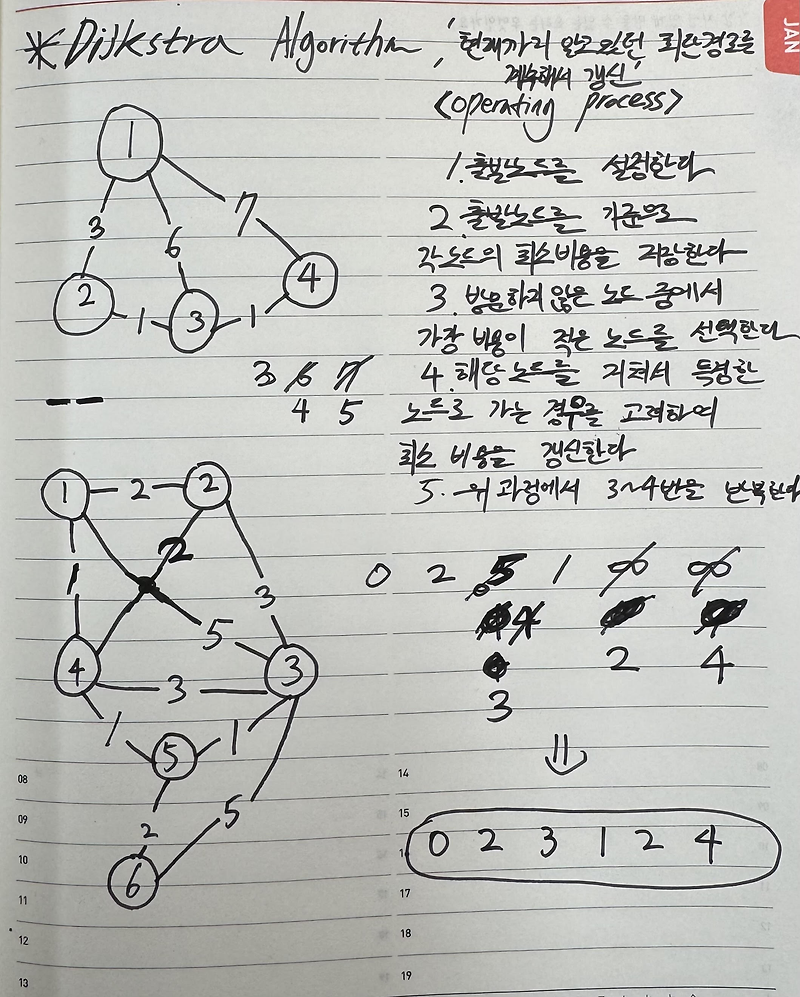 JAN
*Dijkstra Algorithm '현재까지 알고있던 최단경로를
계속해서 갱신'
<operating process>
1. 출발노드를 설정한다
2. 출발노드를 기준으로
각 노드의 최소비용을 저장한다
3. 방문하지 않은 노드 중에서
가장 비용이 적은 노드를 선택한다
4. 해당 노드를 거쳐서 특정한
노드로 가는 경우를 고려하여
최소 비용을 갱신한다
5. 위 과정에서 3~4번을 반복한다
1
3 6 7
2 4
1 3 1
3 6 7
4 5
1 2 2
2
1 3
5
4 3
3
1 1
5
2 5
6
0 2 5 1 ∞ ∞
4
2 4
3
0 2 3 1 2 4
08
09
10
11
12
13
14
15
17
18
19